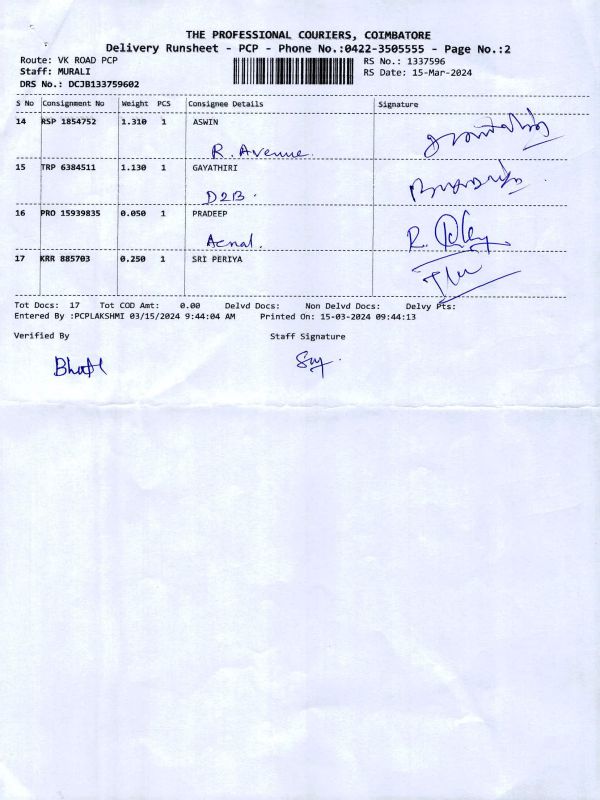 THE PROFESSIONAL COURIERS, COIMBATORE
Delivery Runsheet - PCP - Phone No.:0422-3505555 - Page No.:2
Route: VK ROAD PCP RS No.: 1337596
Staff: MURALI RS Date: 15-Mar-2024
DRS No.: DCJB133759602
S No Consignment No Weight PCS Consignee Details Signature
14 RSP 1854752 1.310 1 ASWIN
R. Avenue.
15 TRP 6384511 1.130 1 GAYATHIRI
D2B.
16 PRO 15939835 0.050 1 PRADEEP
R.
17 KRR 885703 0.250 1 SRI PERIYA
Tot Docs: 17 Tot COD Amt: 0.00 Delvd Docs: Non Delvd Docs: Delvy Pts:
Entered By :PCPLAKSHMI 03/15/2024 9:44:04 AM Printed On: 15-03-2024 09:44:13
Verified By Staff Signature